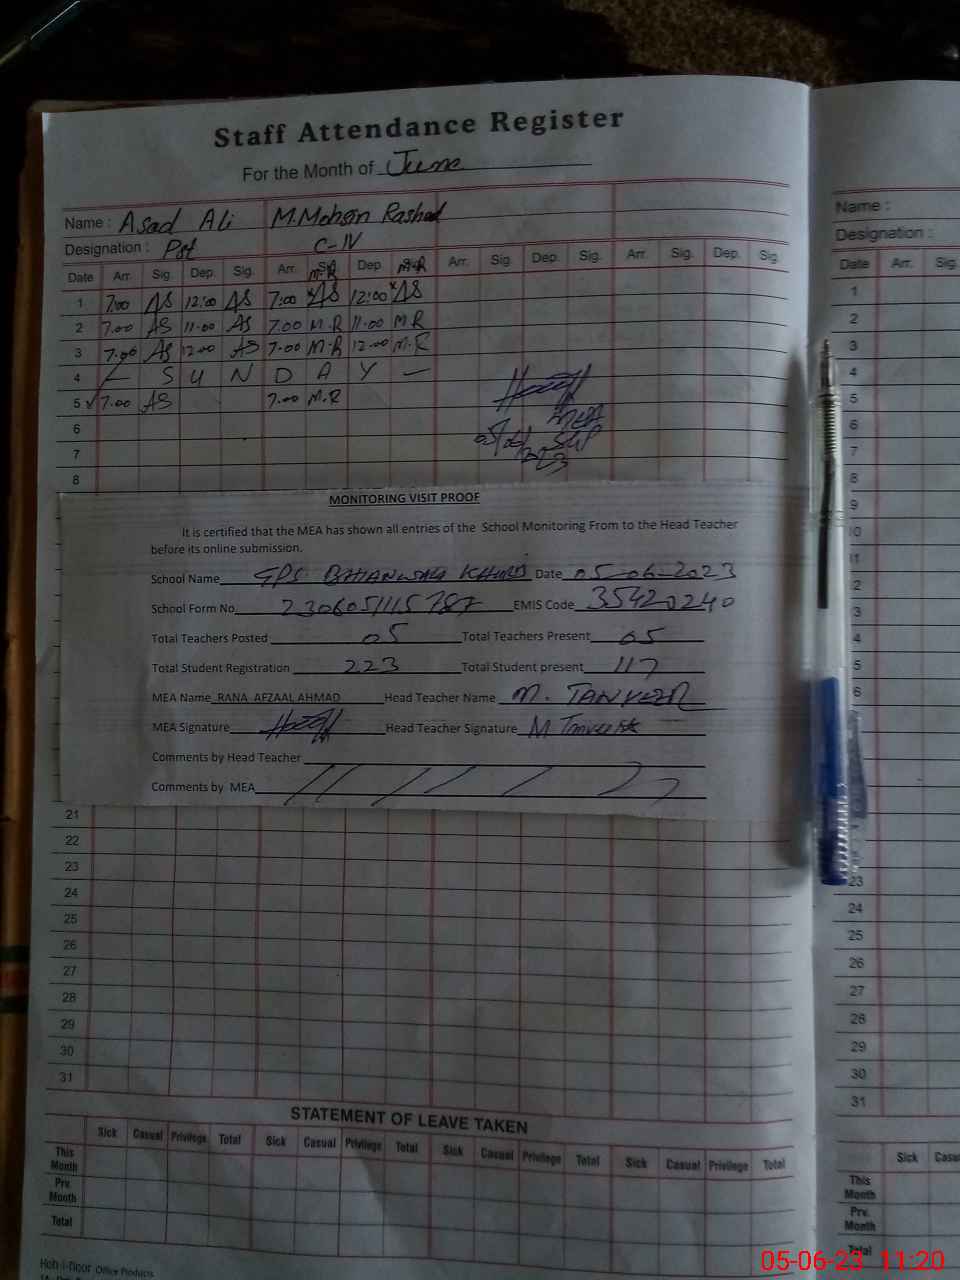 Staff Attendance Register
For the Month of June
Name : Asad Ali M.Mohsin Rashed
Designation : Pst C-IV
Date Arr. Sig. Dep. Sig. Arr. Sig. Dep. Arr. Sig. Dep. Sig. Arr. Sig. Dep. Sig.
M.R M.R
1 7:00 AS 12:00 AS 7:00 AS 12:00 AS
2 7.00 AS 11.00 AS 7.00 M.R 11.00 M R
3 7.00 AS 12.00 AS 7.00 M.R 12.00 M.R
4 — S U N D A Y —
5 7.00 AS 7.00 M.R
MEA
6
05/06/2023
7
8
MONITORING VISIT PROOF
It is certified that the MEA has shown all entries of the School Monitoring From to the Head Teacher
before its online submission.
School Name GPS BHANWALA KHURD Date 05-06-2023
School Form No EMIS Code 35420240
Total Teachers Posted 05 Total Teachers Present 05
Total Student Registration 223 Total Student present 117
MEA Name RANA AFZAAL AHMAD Head Teacher Name M. TANVEER
MEA Signature Head Teacher Signature M Tanveer
Comments by Head Teacher
Comments by MEA
21
22
23
24
25
26
27
28
29
30
31
STATEMENT OF LEAVE TAKEN
Sick Casual Privilege Total Sick Casual Privilege Total Sick Casual Privilege Total Sick Casual Privilege Total
This Month
Prv. Month
Total
Hob-i-Noor Office Products
Name :
Designation :
Date Arr. Sig.
1
2
3
4
5
6
7
8
9
10
11
2
3
4
5
6
23
24
25
26
27
28
29
30
31
Sick
This Month
Prv. Month
Total
05-06-23 11:20